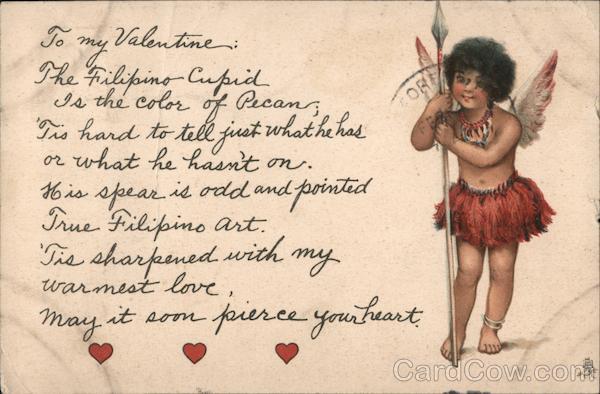 To my Valentine:
The Filipino Cupid
Is the color of Pecan;
'Tis hard to tell just what he has
or what he hasn't on.
His spear is odd and pointed
True Filipino Art.
'Tis sharpened with my
warmest love,
May it soon pierce your heart.
CardCow.com